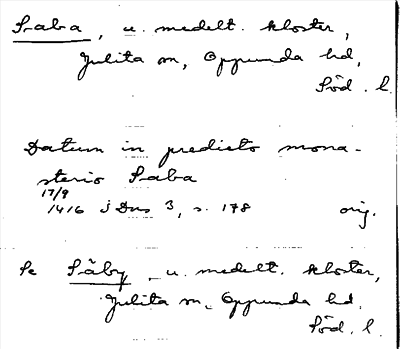 Saba, u. medelt. kloster,
Julita sn, Oppunda hd,
Söd. l.
Datum in predicto mona-
sterio Saba
17/9
1416 i Dns 3, s. 178 orig.
Se Säby, u. medelt. kloster,
Julita sn, Oppunda hd.
Söd. l.